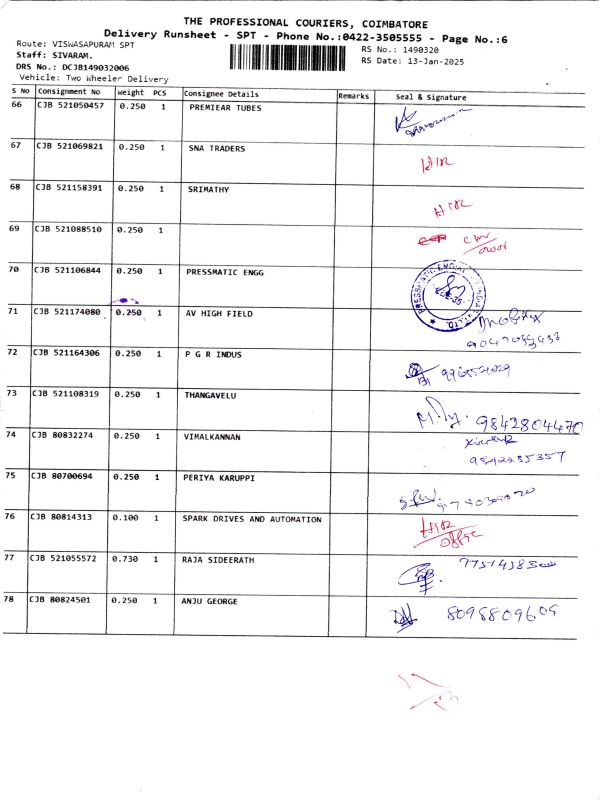 THE PROFESSIONAL COURIERS, COIMBATORE
Delivery Runsheet - SPT - Phone No.:0422-3505555 - Page No.:6
Route: VISWASAPURAM SPT
RS No.: 1490320
Staff: SIVARAM.
RS Date: 13-Jan-2025
DRS No.: DCJB149032006
Vehicle: Two Wheeler Delivery
S No Consignment No Weight PCS Consignee Details Remarks Seal & Signature
66 CJB 521050457 0.250 1 PREMIEAR TUBES
67 CJB 521069821 0.250 1 SNA TRADERS
68 CJB 521158391 0.250 1 SRIMATHY
69 CJB 521088510 0.250 1
70 CJB 521106844 0.250 1 PRESSMATIC ENGG
71 CJB 521174080 0.250 1 AV HIGH FIELD
72 CJB 521164306 0.250 1 P G R INDUS
73 CJB 521108319 0.250 1 THANGAVELU
9842804470
74 CJB 80832274 0.250 1 VIMALKANNAN
9842285357
75 CJB 80700694 0.250 1 PERIYA KARUPPI
76 CJB 80814313 0.100 1 SPARK DRIVES AND AUTOMATION
77 CJB 521055572 0.730 1 RAJA SIDEERATH
78 CJB 80824501 0.250 1 ANJU GEORGE
8098809609